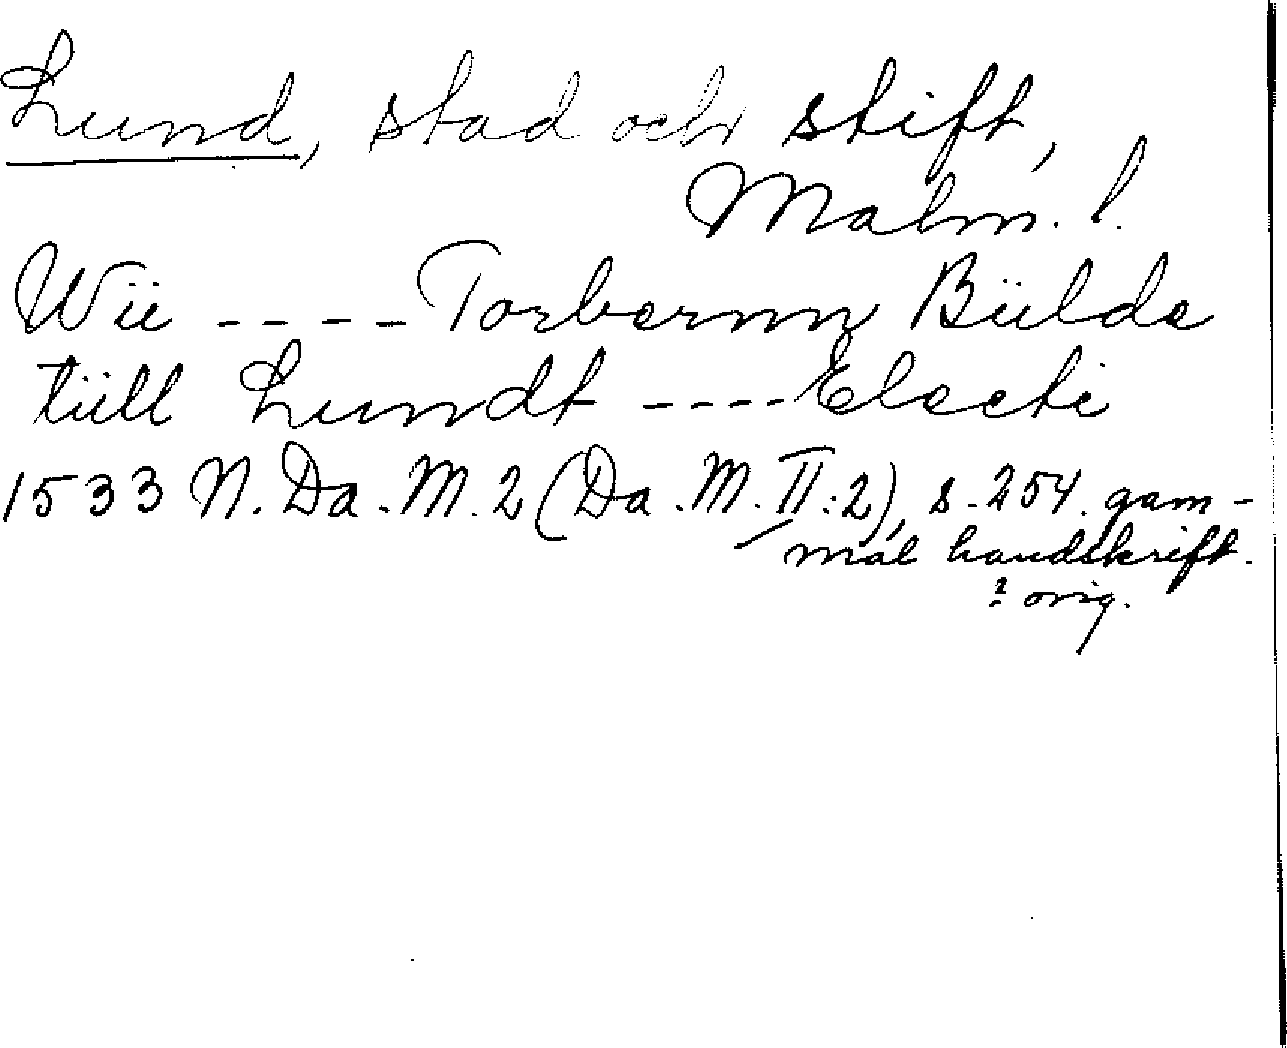 Lund, stad och stift,
Malm. l.
Wii ---- Torbernn Biilde
tiill Lundt ---- Electi
1533 N. Da. M. 2 (Da. M. II:2), s. 254. gam-
mal handskrift.
? orig.